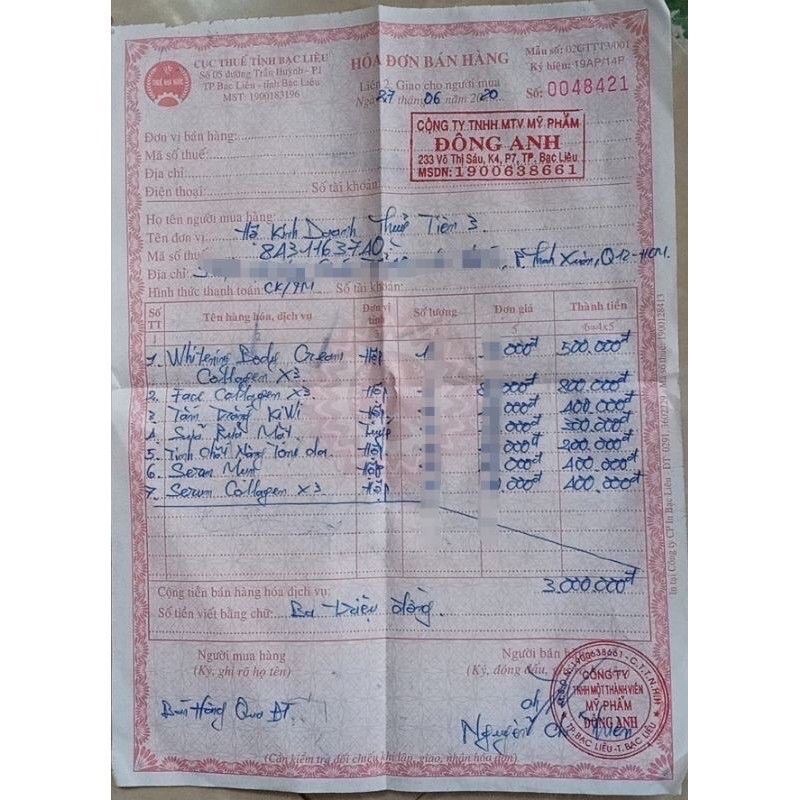 CỤC THUẾ TỈNH BẠC LIÊU
Số 05 đường Trần Huỳnh - P1
TP Bạc Liêu - tỉnh Bạc Liêu
MST: 1900183196
THUẾ NHÀ NƯỚC
HÓA ĐƠN BÁN HÀNG
Liên 2: Giao cho người mua
Ngày 27 tháng 06 năm 2020
Mẫu số: 02GTTT3/001
Ký hiệu: 19AP/14P
Số: 0048421
CÔNG TY TNHH MTV MỸ PHẨM
ĐÔNG ANH
233 Võ Thị Sáu, K4, P7, TP. Bạc Liêu
MSDN: 1900638661
Đơn vị bán hàng:
Mã số thuế:
Địa chỉ:
Điện thoại: Số tài khoản:
Họ tên người mua hàng:
Tên đơn vị Hộ Kinh Doanh Thuỷ Tiên 3
Mã số thuế 8431163740
Địa chỉ P. Thạnh Xuân, Q12-HCM.
Hình thức thanh toán CK/TM Số tài khoản:
Số TT Tên hàng hóa, dịch vụ Đơn vị tính Số lượng Đơn giá Thành tiền
1 5 6=4x5
1. Whitening Body Cream Hộp 1 000đ 500.000đ
Collagen X3
2. Face Collagen X3 Hộp 000đ 800.000đ
3 Tắm Trắng KiWi Hộp 000đ 400.000đ
4 Sữa Rửa Mặt Tuýp 000đ 300.000đ
5 Tinh Chất Nâng Tone da Hộp 000đ 200.000đ
6 Serum Mụn Hộp 000đ 400.000đ
7. Serum Collagen X3 Hộp 000đ 400.000đ
Cộng tiền bán hàng hóa dịch vụ: 3.000.000đ
Số tiền viết bằng chữ: Ba triệu đồng.
Người mua hàng
(Ký, ghi rõ họ tên)
Bán Hàng Qua ĐT
Người bán
(Ký, đóng dấu,
Nguyễn
1900638661 - C.T.T.N.H.H
CÔNG TY
TNHH MỘT THÀNH VIÊN
MỸ PHẨM
ĐÔNG ANH
TP. BẠC LIÊU - T. BẠC LIÊU
(Cần kiểm tra đối chiếu khi lập, giao, nhận hóa đơn)
In tại Công ty CP In Bạc Liêu